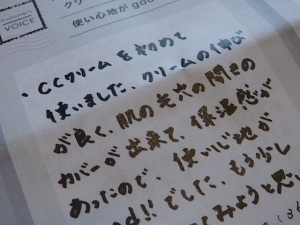 VOICE
クリ
使い心地が goo
・CCクリームを初めて
使いました、クリームの伸び
が良く、肌の毛穴の開きの
カバーが出来て、保湿感が
あったので、使いい地が
d!! でした、もう少し
てみようと思い
(3